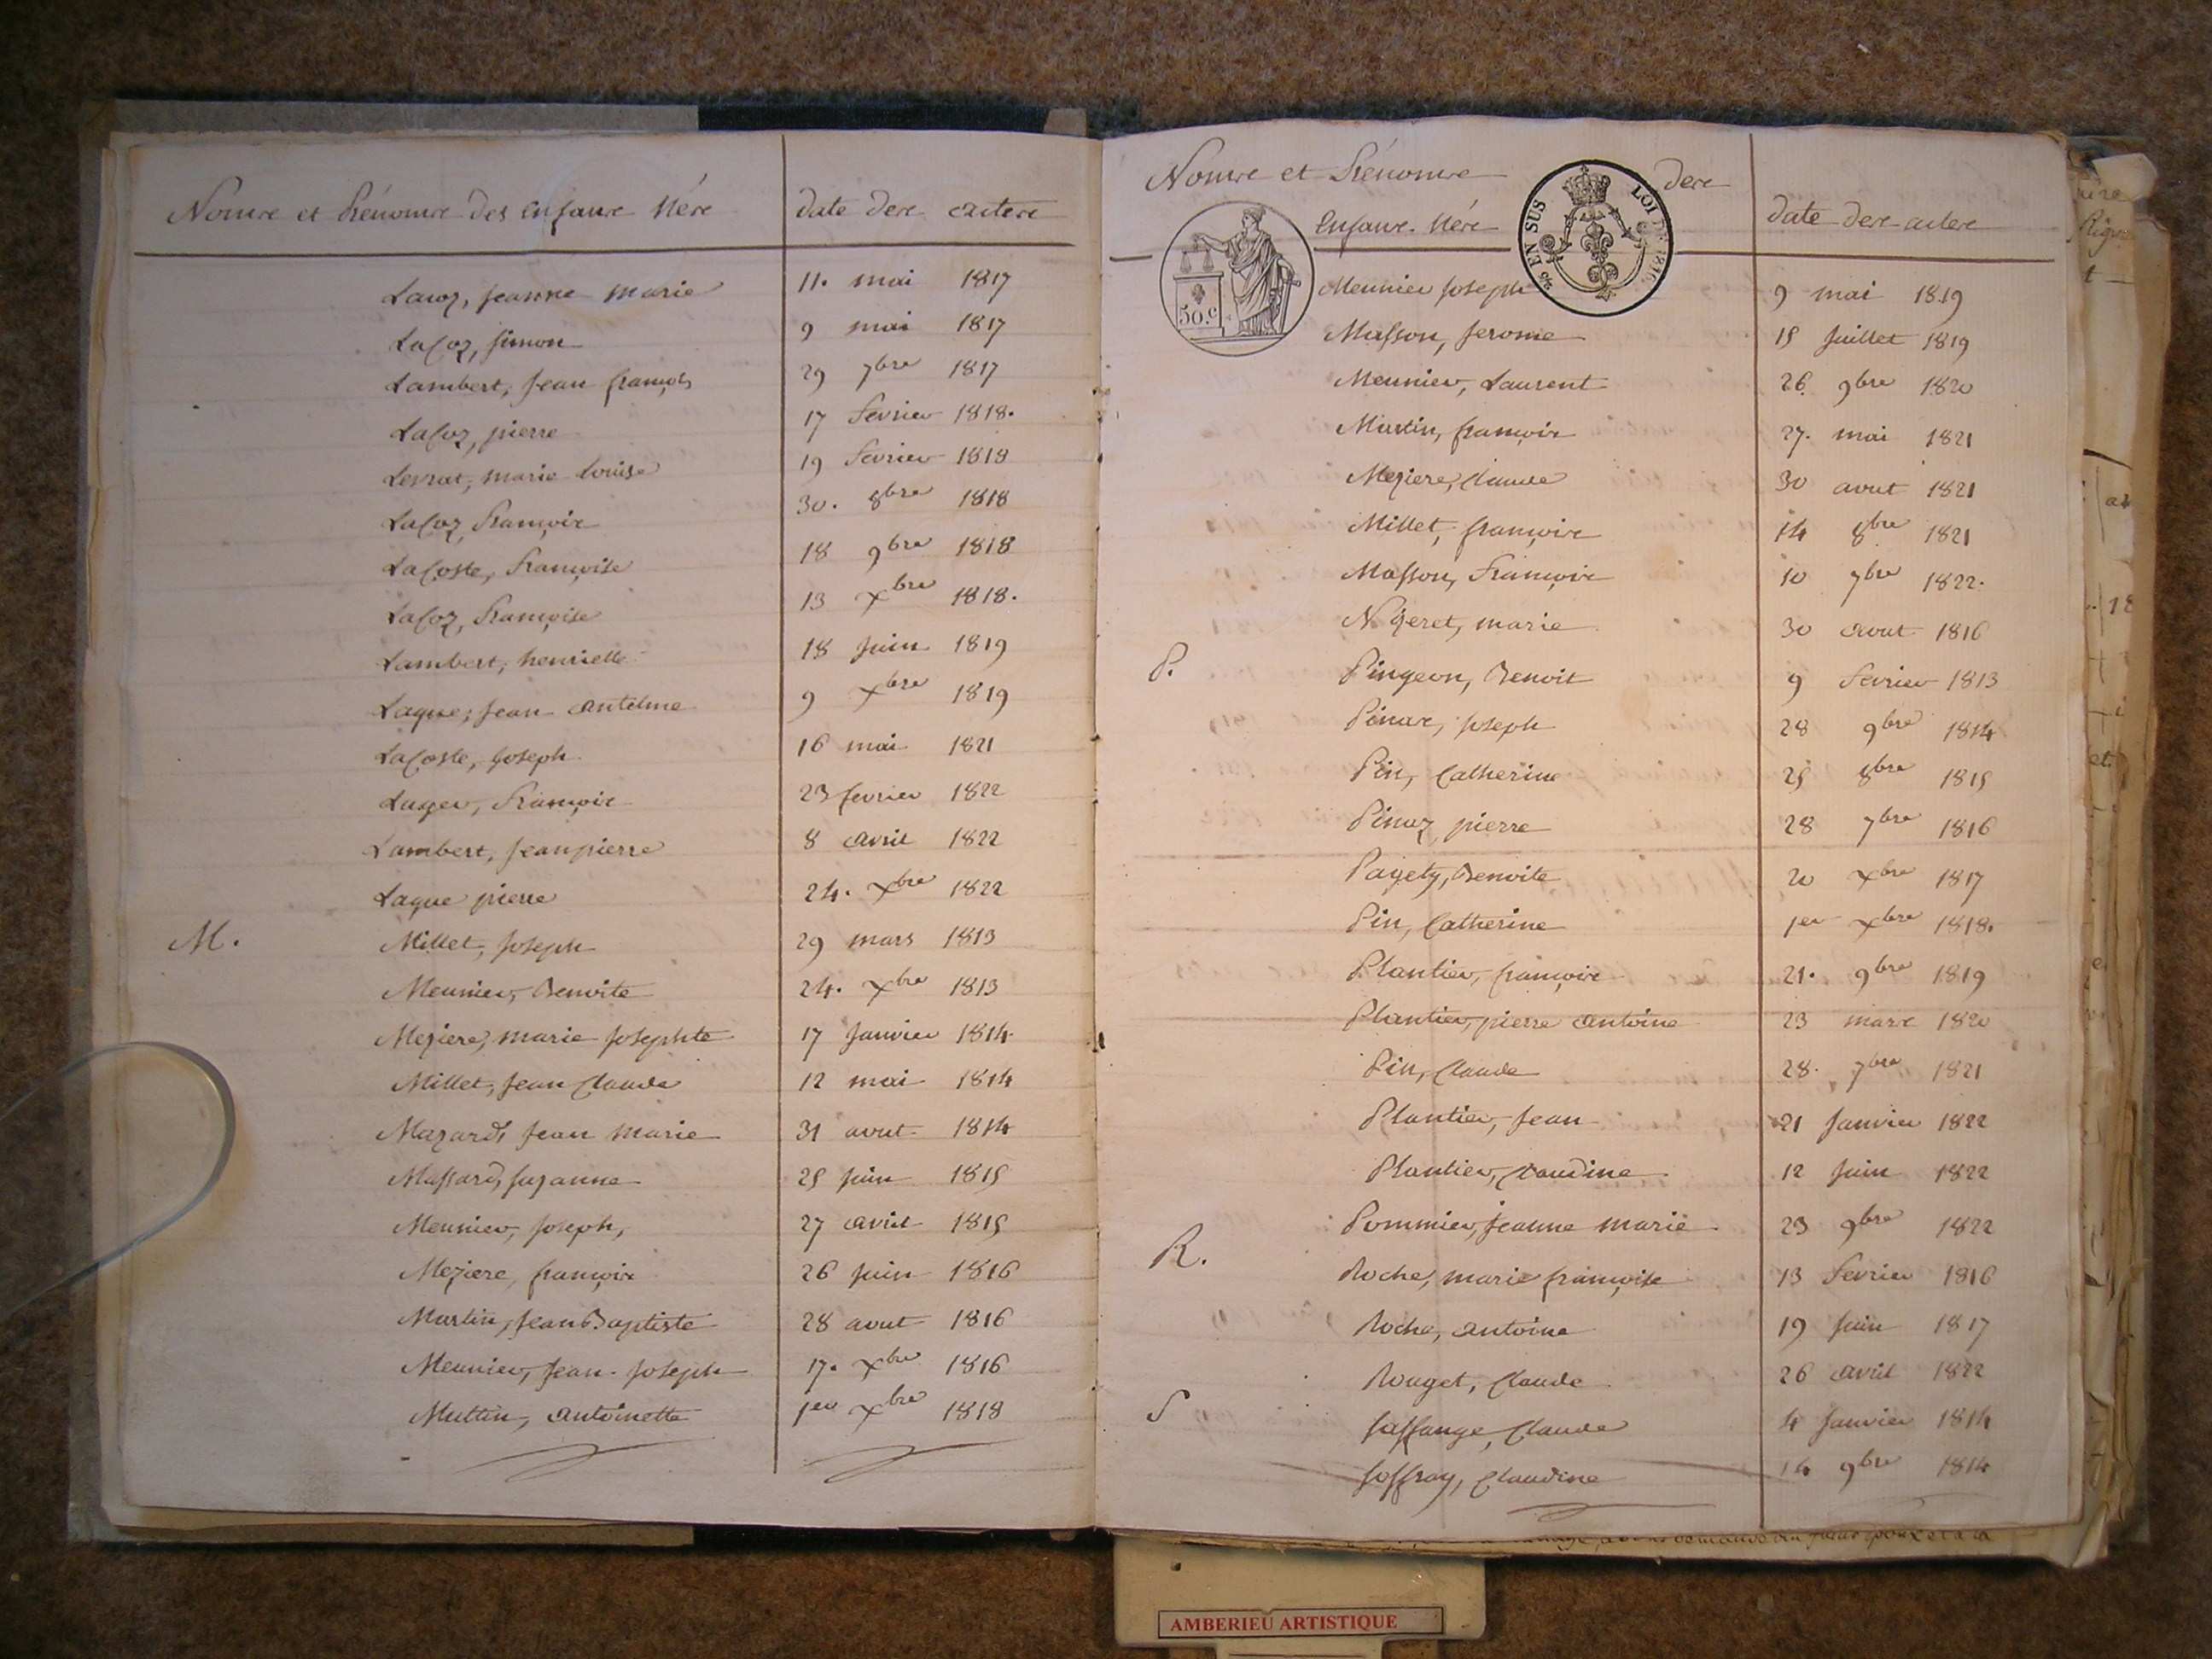 Noms et Prénoms des Enfans Nés date des actes
Lacoz, jeanne marie 11. mai 1817
LaCoz, simon 9 mai 1817
Lambert, Jean françois 29 7bre 1817
LaCoz, pierre 17 fevrier 1818.
Levrat, marie louise 19 fevrier 1818
LaCoz, François 30. 8bre 1818
LaCoste, Françoise 18 9bre 1818
LaCoz, Françoise 13 Xbre 1818.
Lambert, henriette 18 Juin 1819
Lague, Jean antelme 9 Xbre 1819
LaCoste, Joseph 16 mai 1821
Lager, François 23 fevrier 1822
Lambert, Jean pierre 8 avril 1822
Lague pierre 24. Xbre 1822
M. Millet, Joseph 29 mars 1813
Meunier, Benoite 24. Xbre 1813
Meziere, marie Josephte 17 Janvier 1814
Millet, Jean Claude 12 mai 1814
Mazard, Jean Marie 31 aout 1814
Massard, Suzanne 25 Juin 1815
Meunier, Joseph, 27 avril 1815
Meziere, françois 26 Juin 1816
Martin, Jean Baptiste 28 aout 1816
Meunier, Jean Joseph 17. Xbre 1816
Muttin, antoinette 1er Xbre 1818
Noms et Prénoms des
Enfans Nés date des actes
EN SUS LOI DE 1816
50.c
Meunier Joseph 9 mai 1819
Masson, Jerome 15 Juillet 1819
Meunier, Laurent 26. 9bre 1820
Martin, françois 27. mai 1821
Meziere, Claude 30 aout 1821
Millet, françois 14 8bre 1821
Masson, François 10 7bre 1822.
N. Geret, marie 30 aout 1816
P. Pingeon, Benoit 9 fevrier 1813
Pinaz, Joseph 28 9bre 1814
Pin, Catherine 25 8bre 1815
Pinaz, pierre 28 7bre 1816
Pagety, Benoite 20 Xbre 1817
Pin, Catherine 1er Xbre 1818.
Plantier, françois 21. 9bre 1819
Plantier, pierre antoine 23 mars 1820
Pin, Claude 28. 7bre 1821
Plantier, Jean 21 Janvier 1822
Plantier, Claudine 12 Juin 1822
Pommier, Jeanne marie 23 9bre 1822
R. Roche, marie françoise 13 fevrier 1816
Roche, antoine 19 Juin 1817
Rouget, Claude 26 avril 1822
S Saffange, Claude 4 Janvier 1814
Soffray, Claudine 14 9bre 1814
AMBERIEU ARTISTIQUE